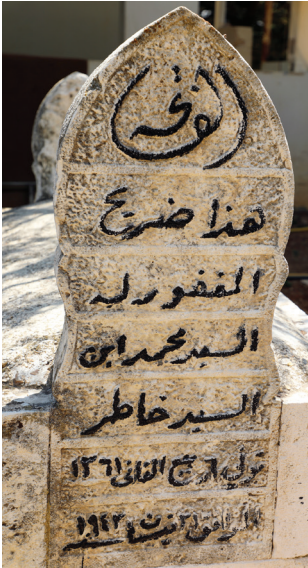 الفاتحة
هذا ضريح
المغفور له
السيد محمد ابن
السيد خاطر
توفي ٦ ربيع الثاني ١٣٦١
الموافق نيسان ١٩٤٢